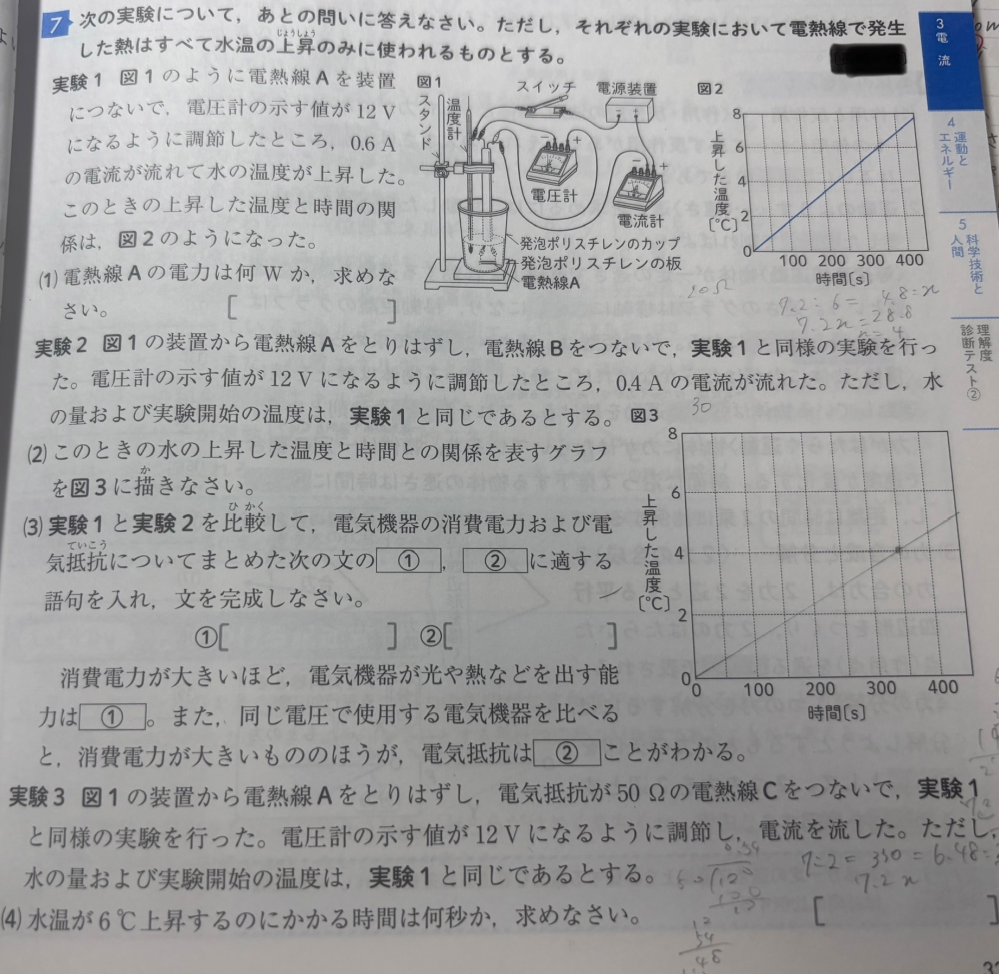 7 次の実験について，あとの問いに答えなさい。ただし，それぞれの実験において電熱線で発生
した熱はすべて水温の上昇のみに使われるものとする。
じょうしょう
実験1 図1のように電熱線Aを装置
につないで，電圧計の示す値が12V
になるように調節したところ，0.6A
の電流が流れて水の温度が上昇した。
このときの上昇した温度と時間の関
係は，図2のようになった。
(1) 電熱線Aの電力は何Wか，求めな
さい。 [ ]
図1
スイッチ
電源装置
スタンド
温度計
電圧計
電流計
発泡ポリスチレンのカップ
発泡ポリスチレンの板
電熱線A
図2
上昇した温度〔℃〕
8
6
4
2
0
100 200 300 400
時間〔s〕
7.2：6＝ 4.8：x
7.2x＝28.8
実験2 図1の装置から電熱線Aをとりはずし，電熱線Bをつないで，実験1と同様の実験を行っ
た。電圧計の示す値が12Vになるように調節したところ，0.4Aの電流が流れた。ただし，水
の量および実験開始の温度は，実験1と同じであるとする。
30
(2) このときの水の上昇した温度と時間との関係を表すグラフ
を図3に描きなさい。
か
(3) 実験1と実験2を比較して，電気機器の消費電力および電
ひかく
気抵抗についてまとめた次の文の ① ， ② に適する
ていこう
語句を入れ，文を完成しなさい。
①[ ] ②[ ]
消費電力が大きいほど，電気機器が光や熱などを出す能
力は ① 。また，同じ電圧で使用する電気機器を比べる
と，消費電力が大きいもののほうが，電気抵抗は ② ことがわかる。
図3
上昇した温度〔℃〕
8
6
4
2
0
100 200 300 400
時間〔s〕
実験3 図1の装置から電熱線Aをとりはずし，電気抵抗が50Ωの電熱線Cをつないで，実験1
と同様の実験を行った。電圧計の示す値が12Vになるように調節し，電流を流した。ただし，
水の量および実験開始の温度は，実験1と同じであるとする。
(4) 水温が6℃上昇するのにかかる時間は何秒か，求めなさい。 [ ]
3 電流
4 運動とエネルギー
5 科学技術と人間
理解度診断テスト②